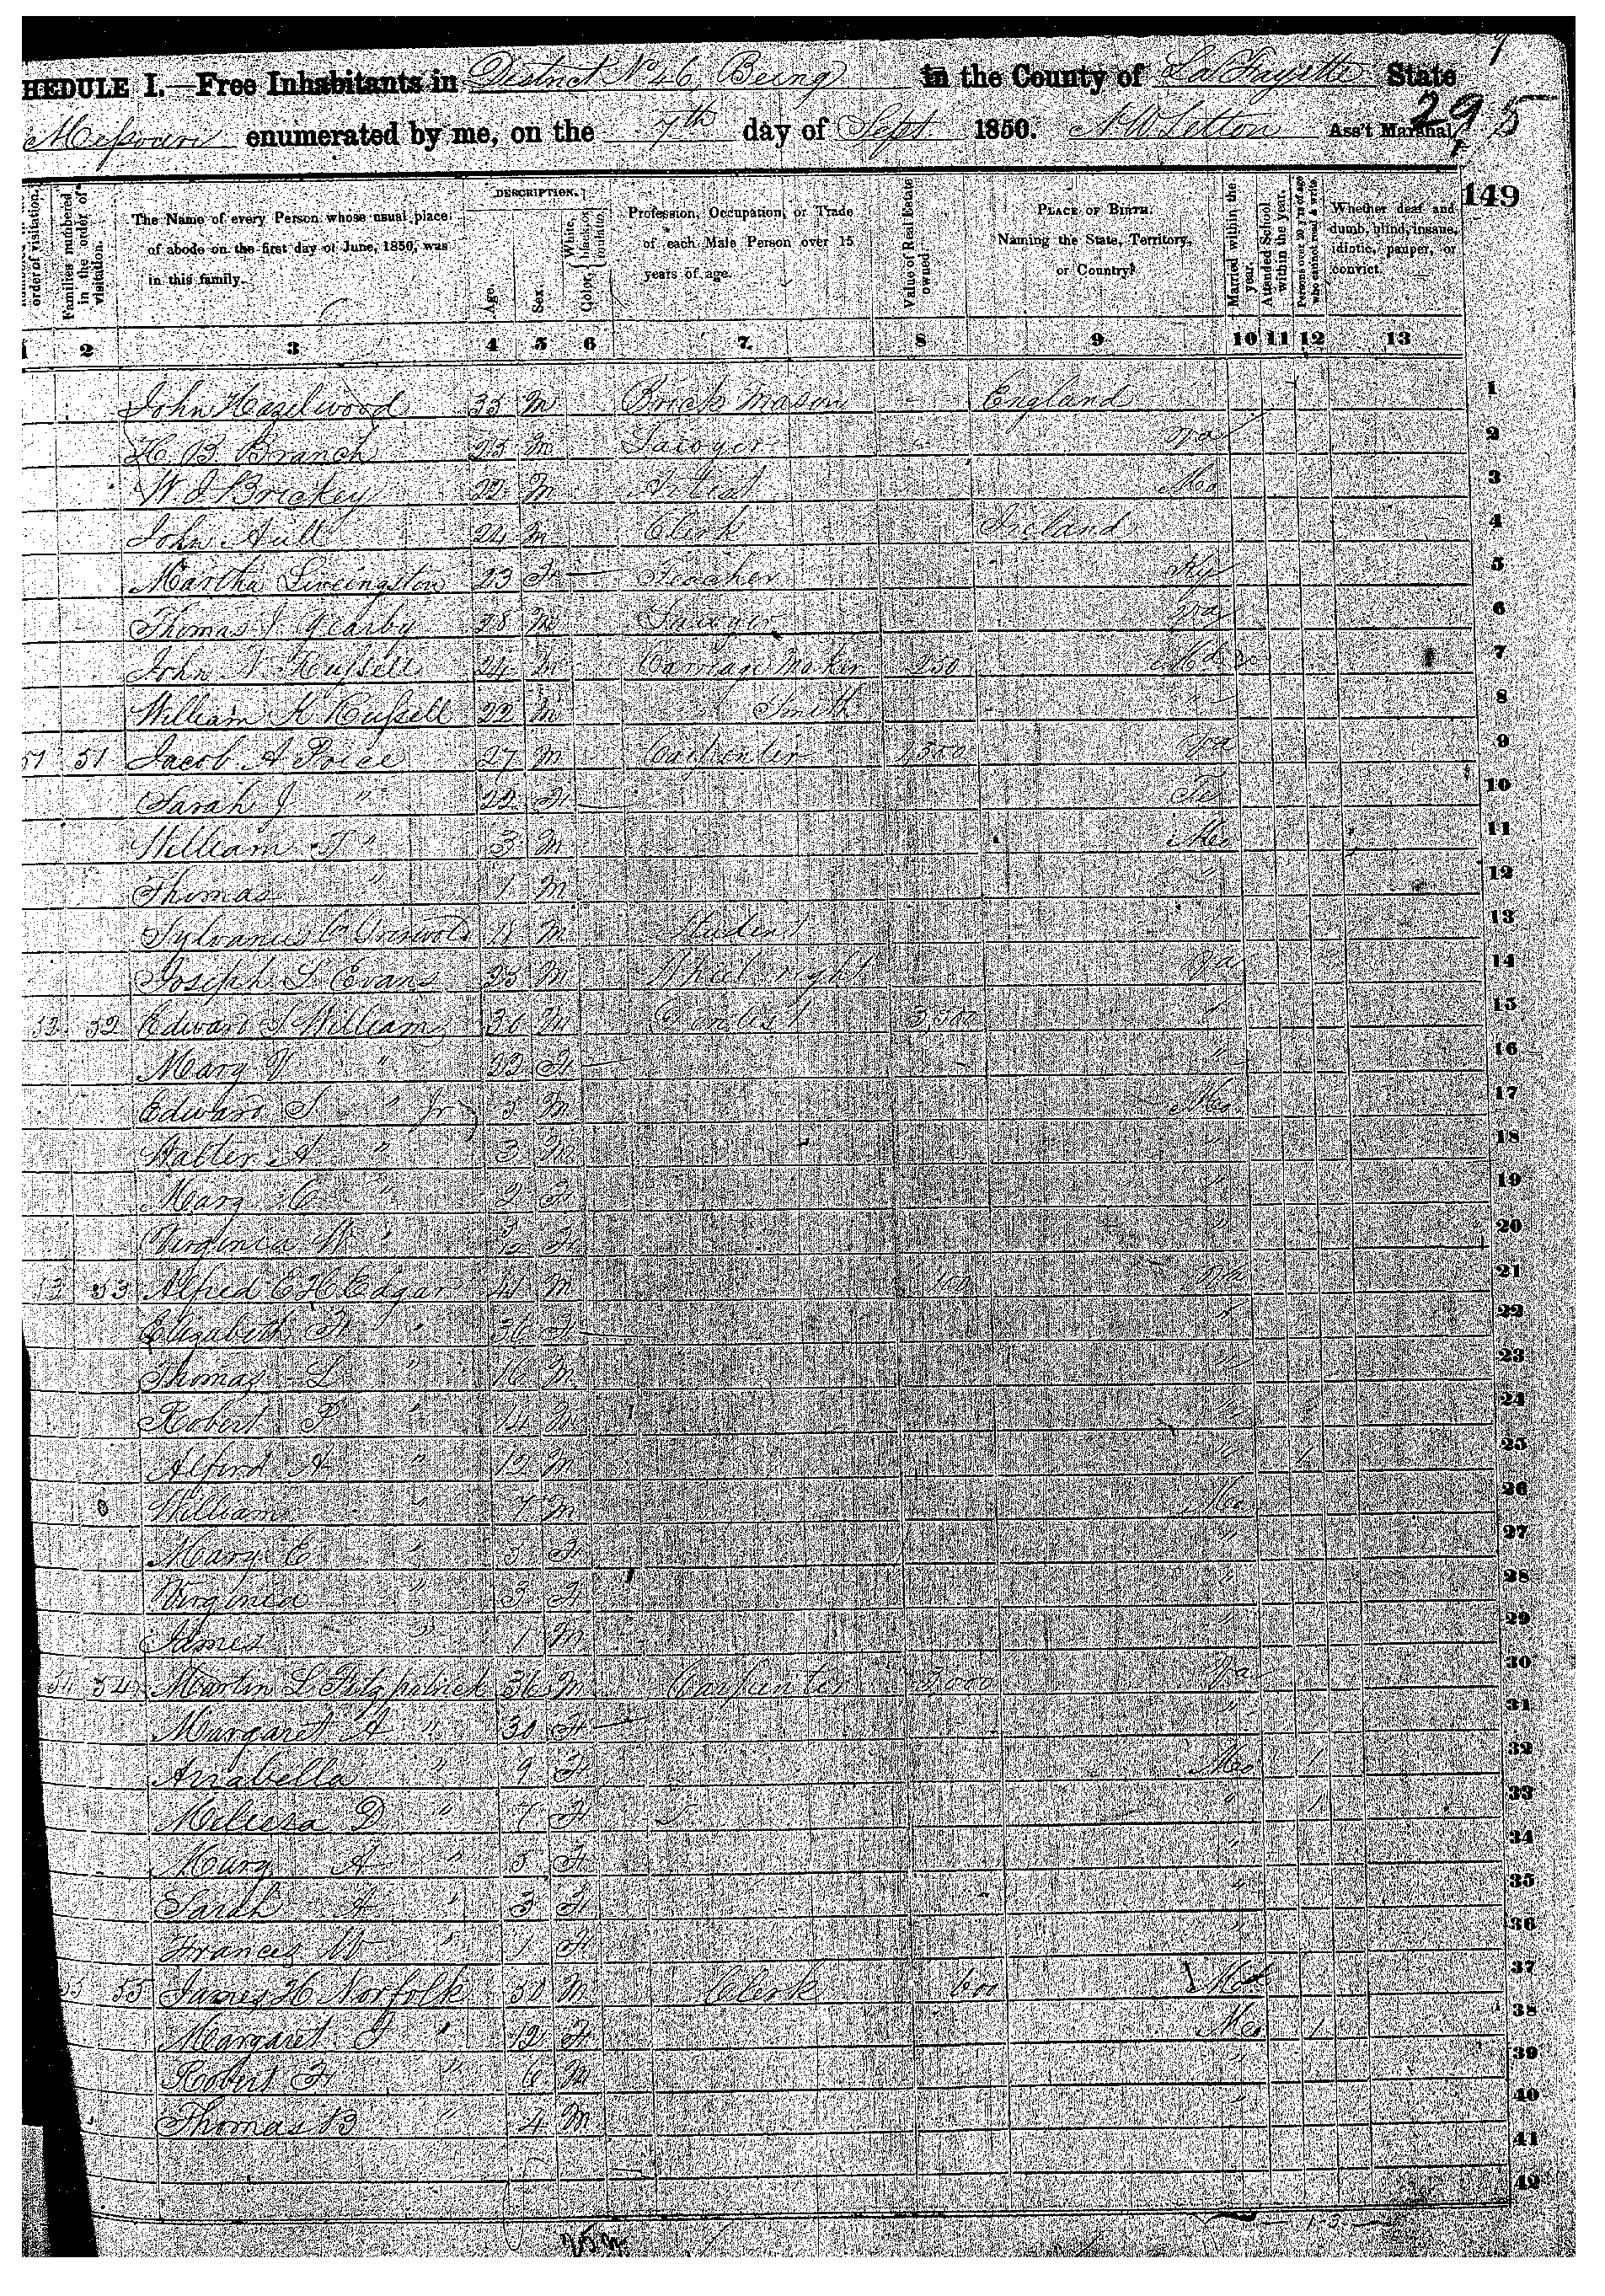 HEDULE I.—Free Inhabitants in District No 46, Being in the County of La Fayette State
Missouri enumerated by me, on the 7th day of Sept 1850. N W Letton Ass't Marshal
295
149
order of visitation. Families numbered in the order of visitation. The Name of every Person whose usual place of abode on the first day of June, 1850, was in this family. DESCRIPTION. Age. Sex. Color, White, black, or mulatto. Profession, Occupation, or Trade of each Male Person over 15 years of age. Value of Real Estate owned. PLACE OF BIRTH. Naming the State, Territory, or Country. Married within the year. Attended School within the year. Persons over 20 y'rs of age who cannot read & write. Whether deaf and dumb, blind, insane, idiotic, pauper, or convict.
1 2 3 4 5 6 7 8 9 10 11 12 13
John Hazelwood 35 M Brick Mason England 1
H. B. Branch 23 M Lawyer Va 2
W J Brickey 22 M Mo 3
John Aull 24 M Clerk Ireland 4
Martha Livingston 23 F Teacher Ky 5
Thomas J Yearby 28 M Lawyer Va 6
John Russell 24 M Carriage Maker 250 Md 7
William H Russell 22 M Smith " 8
51 51 Jacob A Price 27 M Carpenter 1500 Va 9
Sarah J " 22 F Te 10
William T " 3 M Mo 11
Thomas " 1 M " 12
Sylvanus Griswold 18 M Student " 13
Joseph S Evans 23 M Wheelwright Va 14
52 52 Edward S William 36 M Dentist 3,500 " 15
Mary V " 22 F " 16
Edward S " Jr 5 M Mo 17
Walter A " 3 M " 18
Mary E " 2 F " 19
Virginia W " F " 20
53 53 Alfred E H Edgar 41 M 100 Va 21
Elizabeth F " 36 F " 22
Thomas L " 16 M " 23
Robert P " 14 M " 24
Alferd A " 12 M " 1 25
William " 7 M Mo 26
Mary E " 5 F " 27
Virginia " 3 F " 28
James " 1 M " 29
54 54 Martin L Fitzpatrick 36 M Carpenter 2,000 Va 30
Margaret A " 30 F " 31
Arrabella " 9 F Mo 1 32
Melissa D " 7 F " 1 33
Mary A " 5 F " 34
Sarah A " 3 F " 35
Frances W " 1 F " 36
55 55 James H Norfolk 50 M Clerk 600 Md 37
Margaret J " 12 F Mo 1 38
Robert F " 6 M " 39
Thomas B " 4 M " 40
41
42